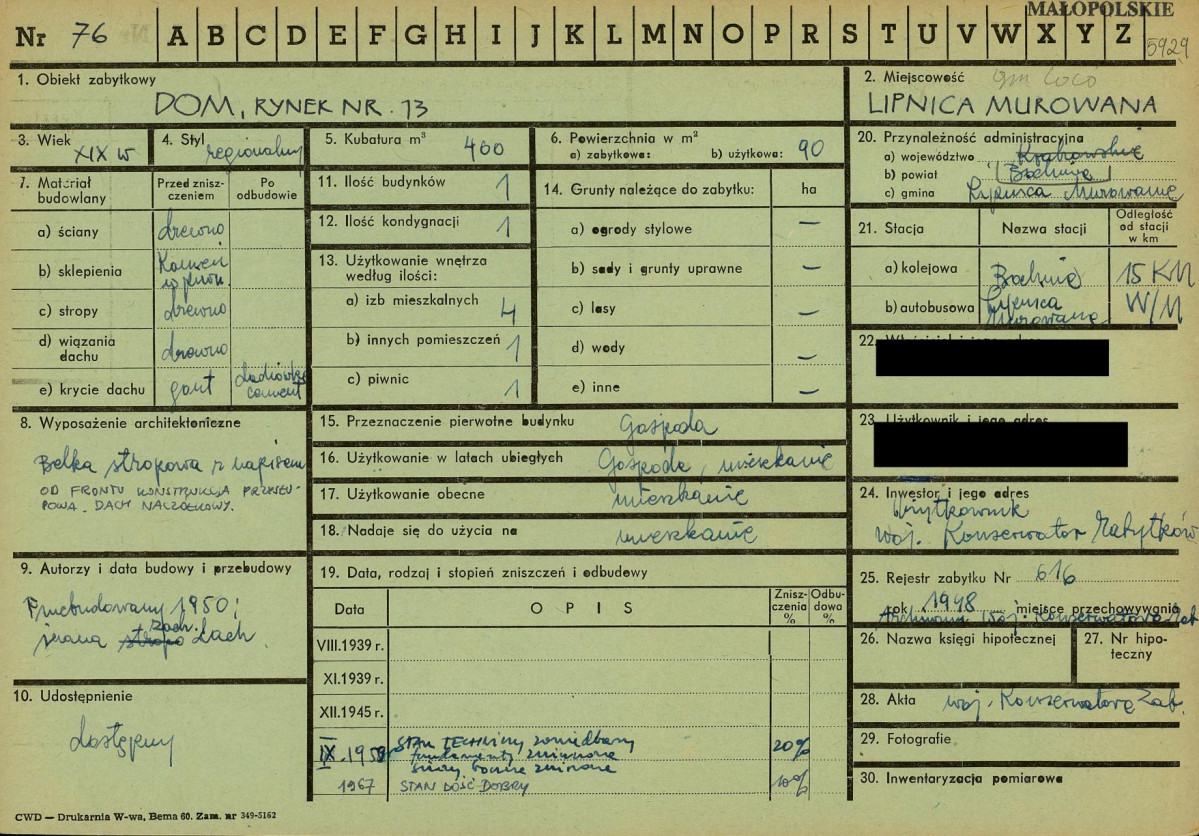 MAŁOPOLSKIE
Nr 76 A B C D E F G H I J K L M N O P R S T U V W X Y Z
5929
1. Obiekt zabytkowy
DOM, RYNEK NR. 13
2. Miejscowość gm loco
LIPNICA MUROWANA
3. Wiek
XIX w
4. Styl
regionalny
5. Kubatura m³
400
6. Powierzchnia w m²
a) zabytkowa: b) użytkowa: 90
7. Materiał budowlany
Przed zniszczeniem
Po odbudowie
a) ściany drewno
b) sklepienia
c) stropy drewno
d) wiązania dachu drewno
e) krycie dachu gont dachówka cement
8. Wyposażenie architektoniczne
Belka stropowa z napisem
OD FRONTU KONSTRUKCJA PRZYSŁU-
POWA. DACH NACZÓŁKOWY.
9. Autorzy i data budowy i przebudowy
Przebudowany 1950;
zach.
dach
10. Udostępnienie
dostępny
11. Ilość budynków 1
12. Ilość kondygnacji 1
13. Użytkowanie wnętrza według ilości:
a) izb mieszkalnych 4
b) innych pomieszczeń 1
c) piwnic 1
14. Grunty należące do zabytku: ha
a) ogrody stylowe —
b) sady i grunty uprawne —
c) lasy —
d) wody —
e) inne —
15. Przeznaczenie pierwotne budynku Gospoda
16. Użytkowanie w latach ubiegłych Gospoda, mieszkanie
17. Użytkowanie obecne mieszkanie
18. Nadaje się do użycia na mieszkanie
19. Data, rodzaj i stopień zniszczeń i odbudowy
Data
OPIS
Zniszczenia %
Odbudowa %
VIII.1939 r.
XI.1939 r.
XII.1945 r.
IX.1959 STAN TECHNICZNY zaniedbany 20%
fundamenty zniszczone
1967 STAN DOŚĆ DOBRY 10%
20. Przynależność administracyjna
a) województwo Krakowskie
b) powiat Bochnia
c) gmina Lipnica Murowana
21. Stacja
Nazwa stacji
Odległość od stacji w km
a) kolejowa Bochnia 15 KM
b) autobusowa Lipnica Murowana W/M
22.
23. Użytkownik i jego adres
24. Inwestor i jego adres
Użytkownik
Woj. Konserwator Zabytków
25. Rejestr zabytku Nr 616
rok 1948 miejsce przechowywania
Archiwum Woj. Konserwatora Zab.
26. Nazwa księgi hipotecznej
27. Nr hipoteczny
28. Akta Woj. Konserwatora Zab.
29. Fotografie
30. Inwentaryzacja pomiarowa
CWD — Drukarnia W-wa, Bema 60. Zam. nr 349-5162